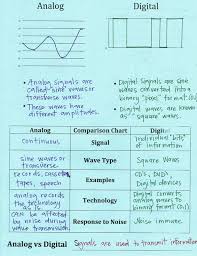 Analog
Digital
• Analog signals are
called "sine" waves or
transverse waves.
• These waves have
different amplitudes.
• Digital signals are sine
waves converted into a
binary
• Digital waves are known
as "square" waves.
Analog Comparison Chart Digital
Continuous Signal Individual "bits" of information
sine waves or transverse. Wave Type Square Waves
records, cassette tapes, speech Examples CD's, DVD's, Digital devices
analog records the Technology
can be affected by noise during wave transmission Response to Noise Noise immune.
Analog vs Digital Signals are used to transmit information